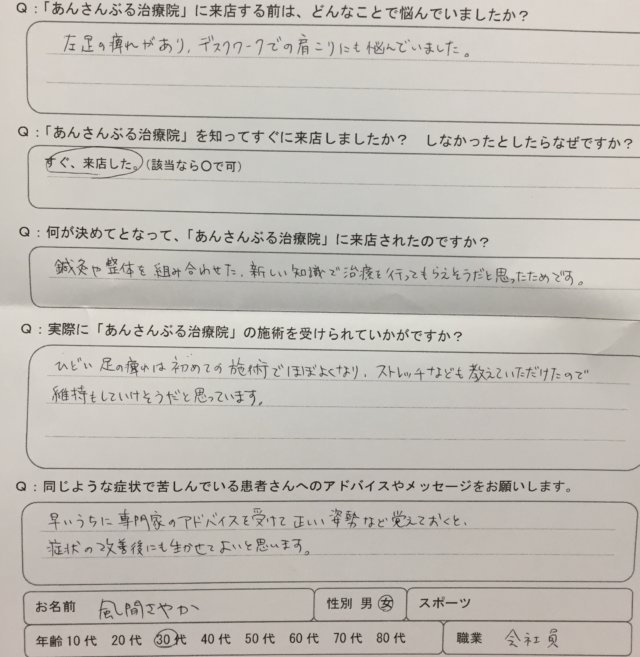 Q：「あんさんぶる治療院」に来店する前は、どんなことで悩んでいましたか？
左足の痺れがあり、デスクワークでの肩こりにも悩んでいました。
Q：「あんさんぶる治療院」を知ってすぐに来店しましたか？　しなかったとしたらなぜですか？
すぐ、来店した。（該当なら〇で可）
Q：何が決めてとなって、「あんさんぶる治療院」に来店されたのですか？
鍼灸や整体を組み合わせた、新しい知識で治療を行ってもらえそうだと思ったためです。
Q：実際に「あんさんぶる治療院」の施術を受けられていかがですか？
ひどい足の痺れは初めての施術でほぼよくなり、ストレッチなども教えていただけたので
維持もしていけそうだと思っています。
Q：同じような症状で苦しんでいる患者さんへのアドバイスやメッセージをお願いします。
早いうちに専門家のアドバイスを受けて正しい姿勢など覚えておくと、
症状の改善後にも生かせてよいと思います。
お名前　風間さやか　性別　男　女　スポーツ
年齢 10代　20代　30代　40代　50代　60代　70代　80代　職業　会社員